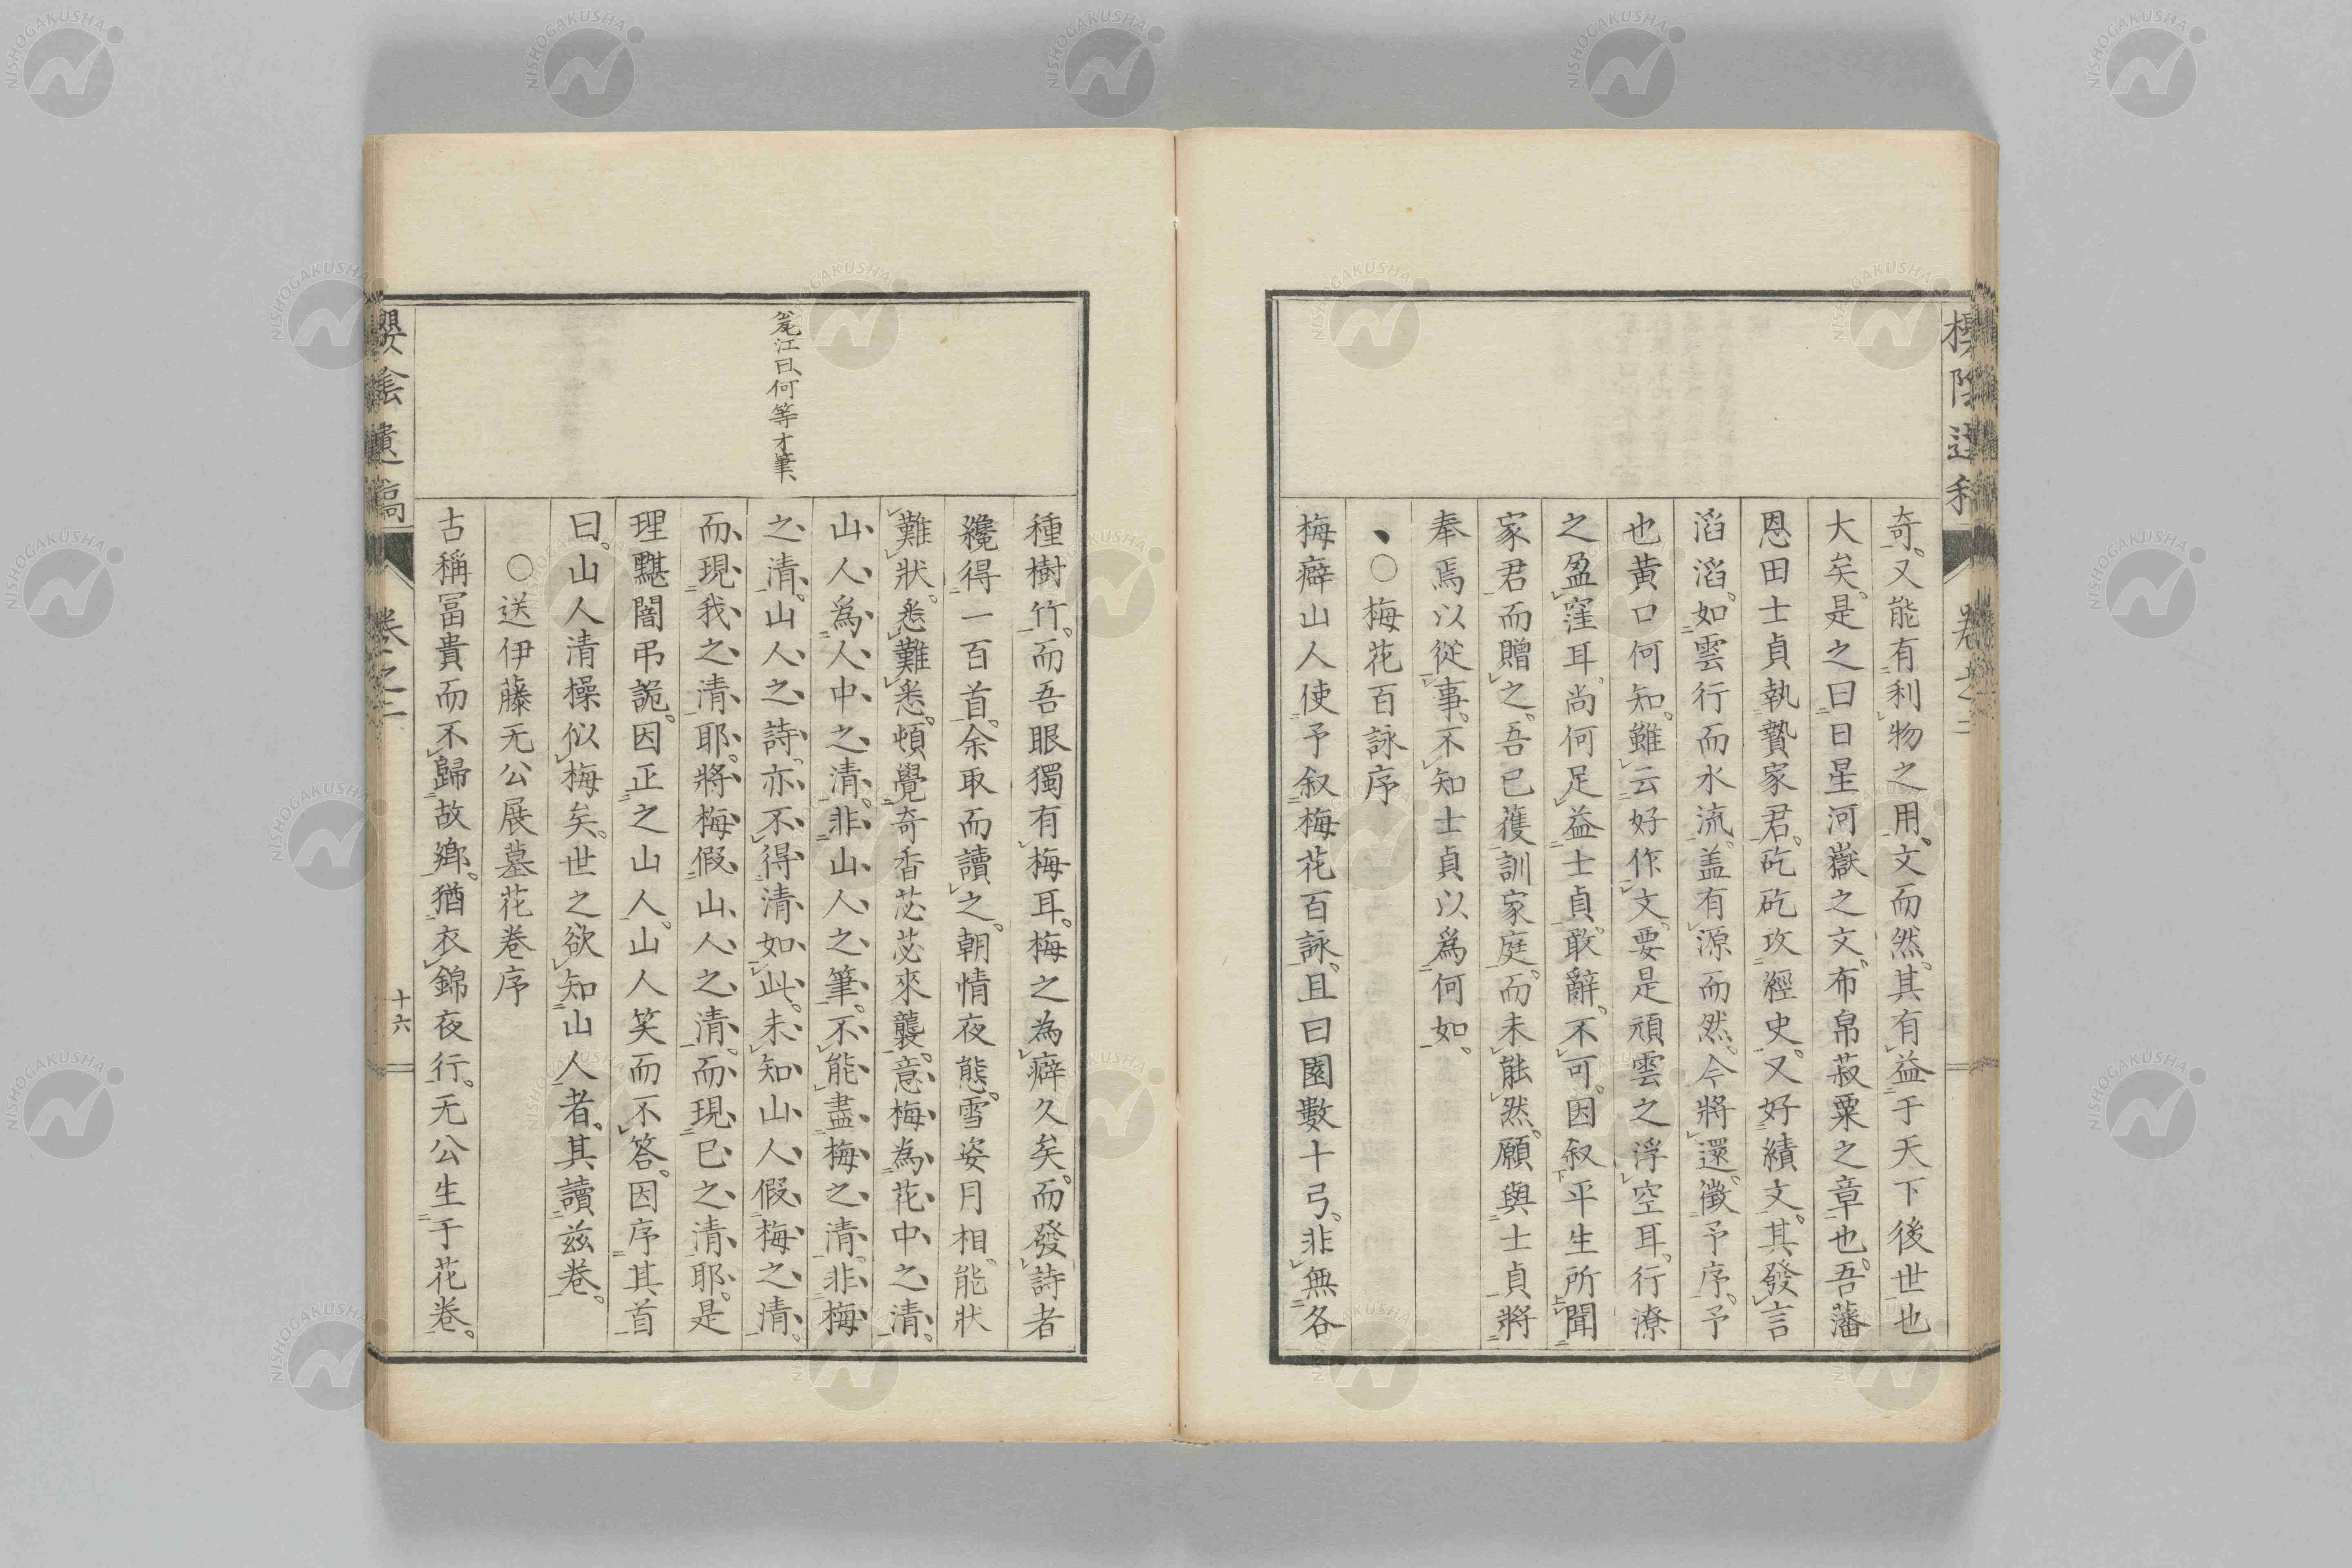 奇。又能有利物之用、文而然。其有益于天下後世也
大矣。是之曰日星河嶽之文。布帛菽粟之章也。吾藩
恩田士貞執贄家君。矻矻攻經史。又好績文。其發言
滔滔。如雲行而水流。盖有源而然。今將還。徵予序。予
也黃口何知。雖云好作文。要是頑雲之浮空耳。行潦
之盈窪耳。尚何足益士貞。敢辭。不可。因叙平生所聞
家君而贈之。吾已獲訓家庭。而未能然。願與士貞將
奉焉以從事。不知士貞以爲何如。
、○梅花百詠序
梅癖山人使予叙梅花百詠。且曰園數十弓。非無各
種樹竹。而吾眼獨有梅耳。梅之為癖久矣。而發詩者
纔得一百首。余取而讀之。朝情夜態。雪姿月相。能狀
難狀。悉難悉。頓覺奇香苾苾來襲。意梅為花中之清。
山人爲人中之清。非山人之筆。不能盡梅之清。非梅
之清。山人之詩。亦不得清如此。未知山人假梅之清。
而現我之清耶。將梅假山人之清。而現已之清耶。是
理黮闇弔詭。因正之山人。山人笑而不答。因序其首
曰。山人清操似梅矣。世之欲知山人者、其讀兹卷。
○送伊藤无公展墓花卷序
古稱冨貴而不歸故鄉。猶衣錦夜行。无公生于花卷。
江曰、何等才筆、
櫻陰遺稿
卷之二
十六
NISHOGAKUSHA